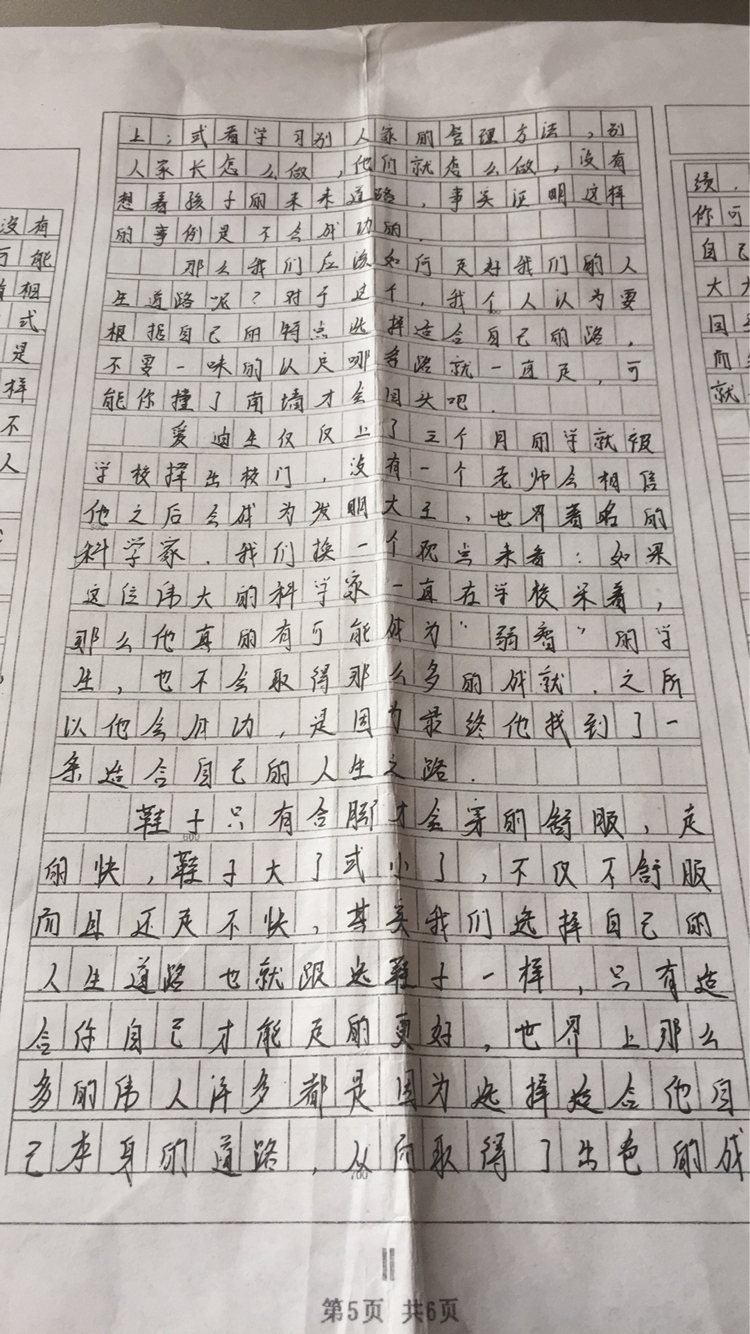 上；或看学习别人家的管理方法，别
人家长怎么做，他们就怎么做，没有
想着孩子的未来道路，事实证明这样
的事例是不会成功的．
那么我们应该如何走好我们的人
生道路呢？对于这个，我个人认为要
根据自己的特点选择适合自己的路，
不要一味的认定哪条路就一直走，可
能你撞了南墙才会回头吧．
爱迪生仅仅上了三个月的学就被
学校择出校门，没有一个老师会相信
他之后会成为发明大王，世界著名的
科学家．我们换一个视点来看：如果
这位伟大的科学家一直在学校呆着，
那么他真的有可能成为"弱智"的学
生，也不会取得那么多的成就．之所
以他会成功，是因为最终他找到了一
条适合自己的人生之路．
鞋子只有合脚才会穿的舒服，走
600
的快，鞋子大了或小了，不仅不舒服
而且还走不快，其实我们选择自己的
人生道路也就跟选鞋子一样，只有适
合你自己才能走的更好，世界上那么
多的伟人许多都是因为选择适合他自
己本身的道路，从而取得了出色的成
700
第5页 共6页
没有
可能
相
式
是
样
不
人
绩．
你可
自己
大大
因
而
就